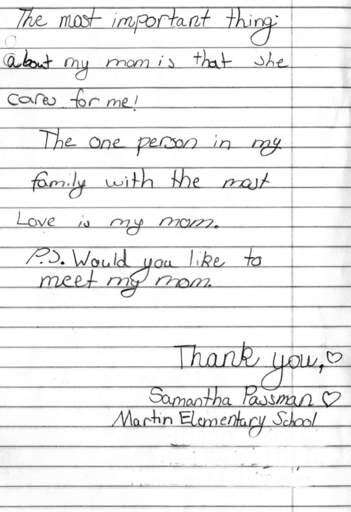 The most important thing:
about my mom is that she
cares for me!
The one person in my
family with the most
Love is my mom.
P.S. Would you like to
meet my mom.
Thank you, ♡
Samantha Passman ♡
Martin Elementary School